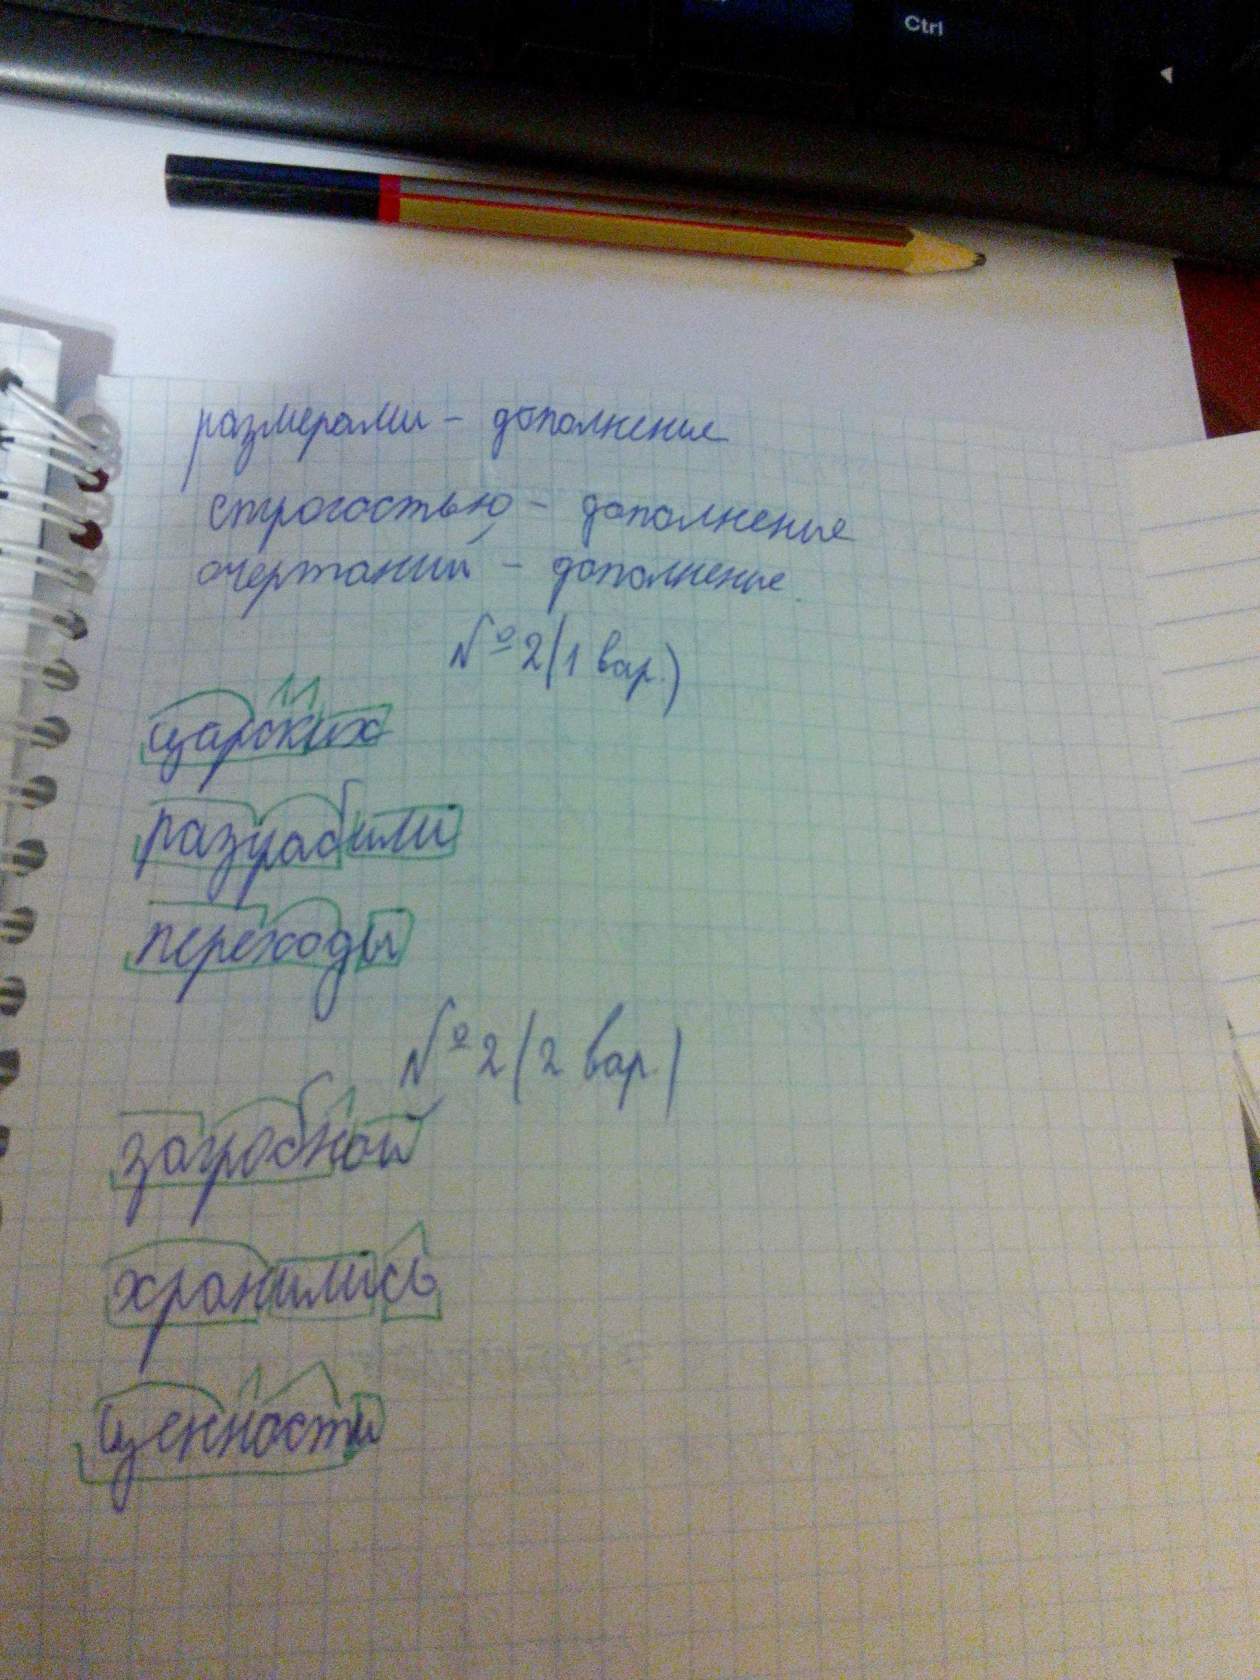 Ctrl
размерами - дополнение
строгостью - дополнение
очертаний - дополнение.
№2(1 вар.)
царских
разграбили
переходы
№2(2 вар.)
загробной
хранились
ценности